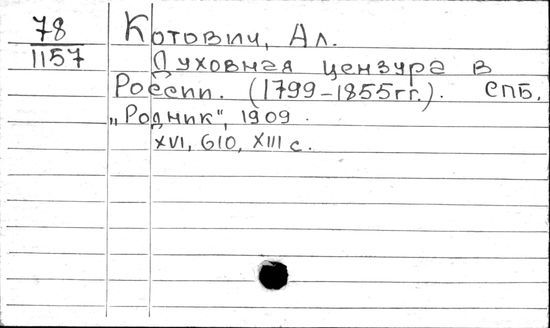 78
1157
Котович, Ал.
Духовная цензура в
России. (1799-1855гг.). СПБ,
„Родник", 1909.
XVI, 610, XIII с.